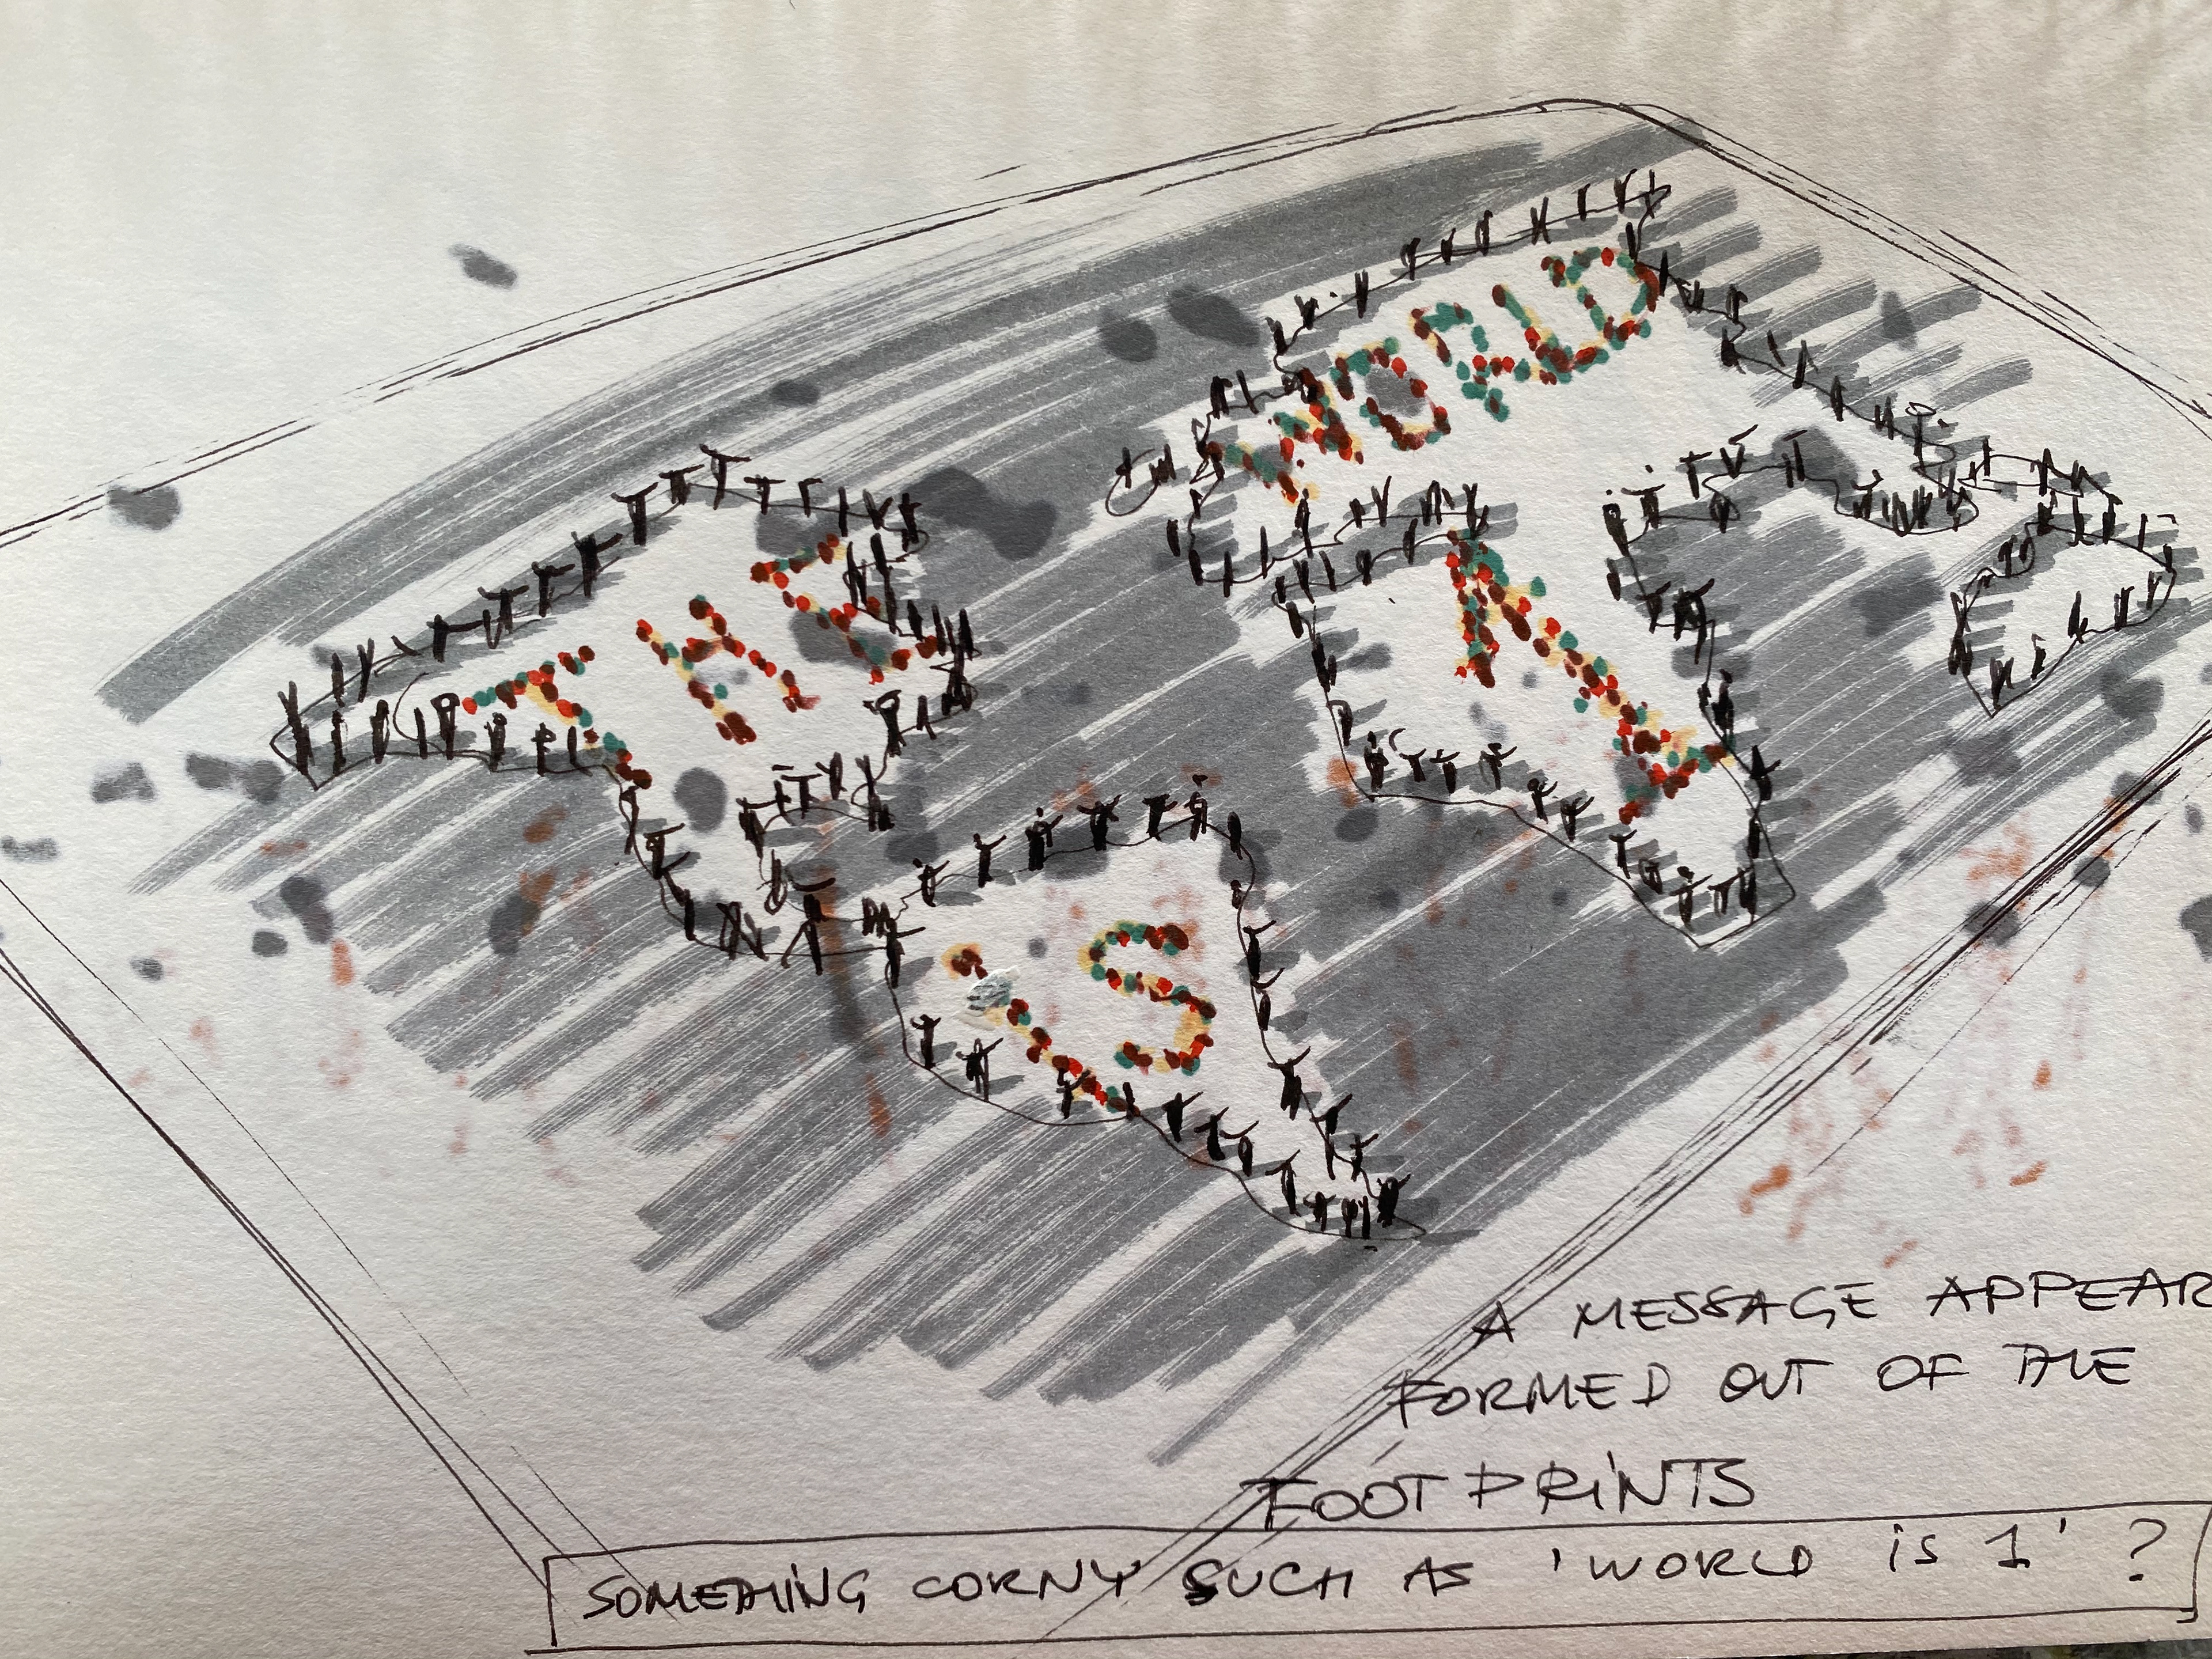 THE
WORLD
iS
1
A MESSAGE APPEAR
FORMED OUT OF THE
FOOTPRINTS
SOMETHING CORNY SUCH AS 'WORLD iS 1' ?